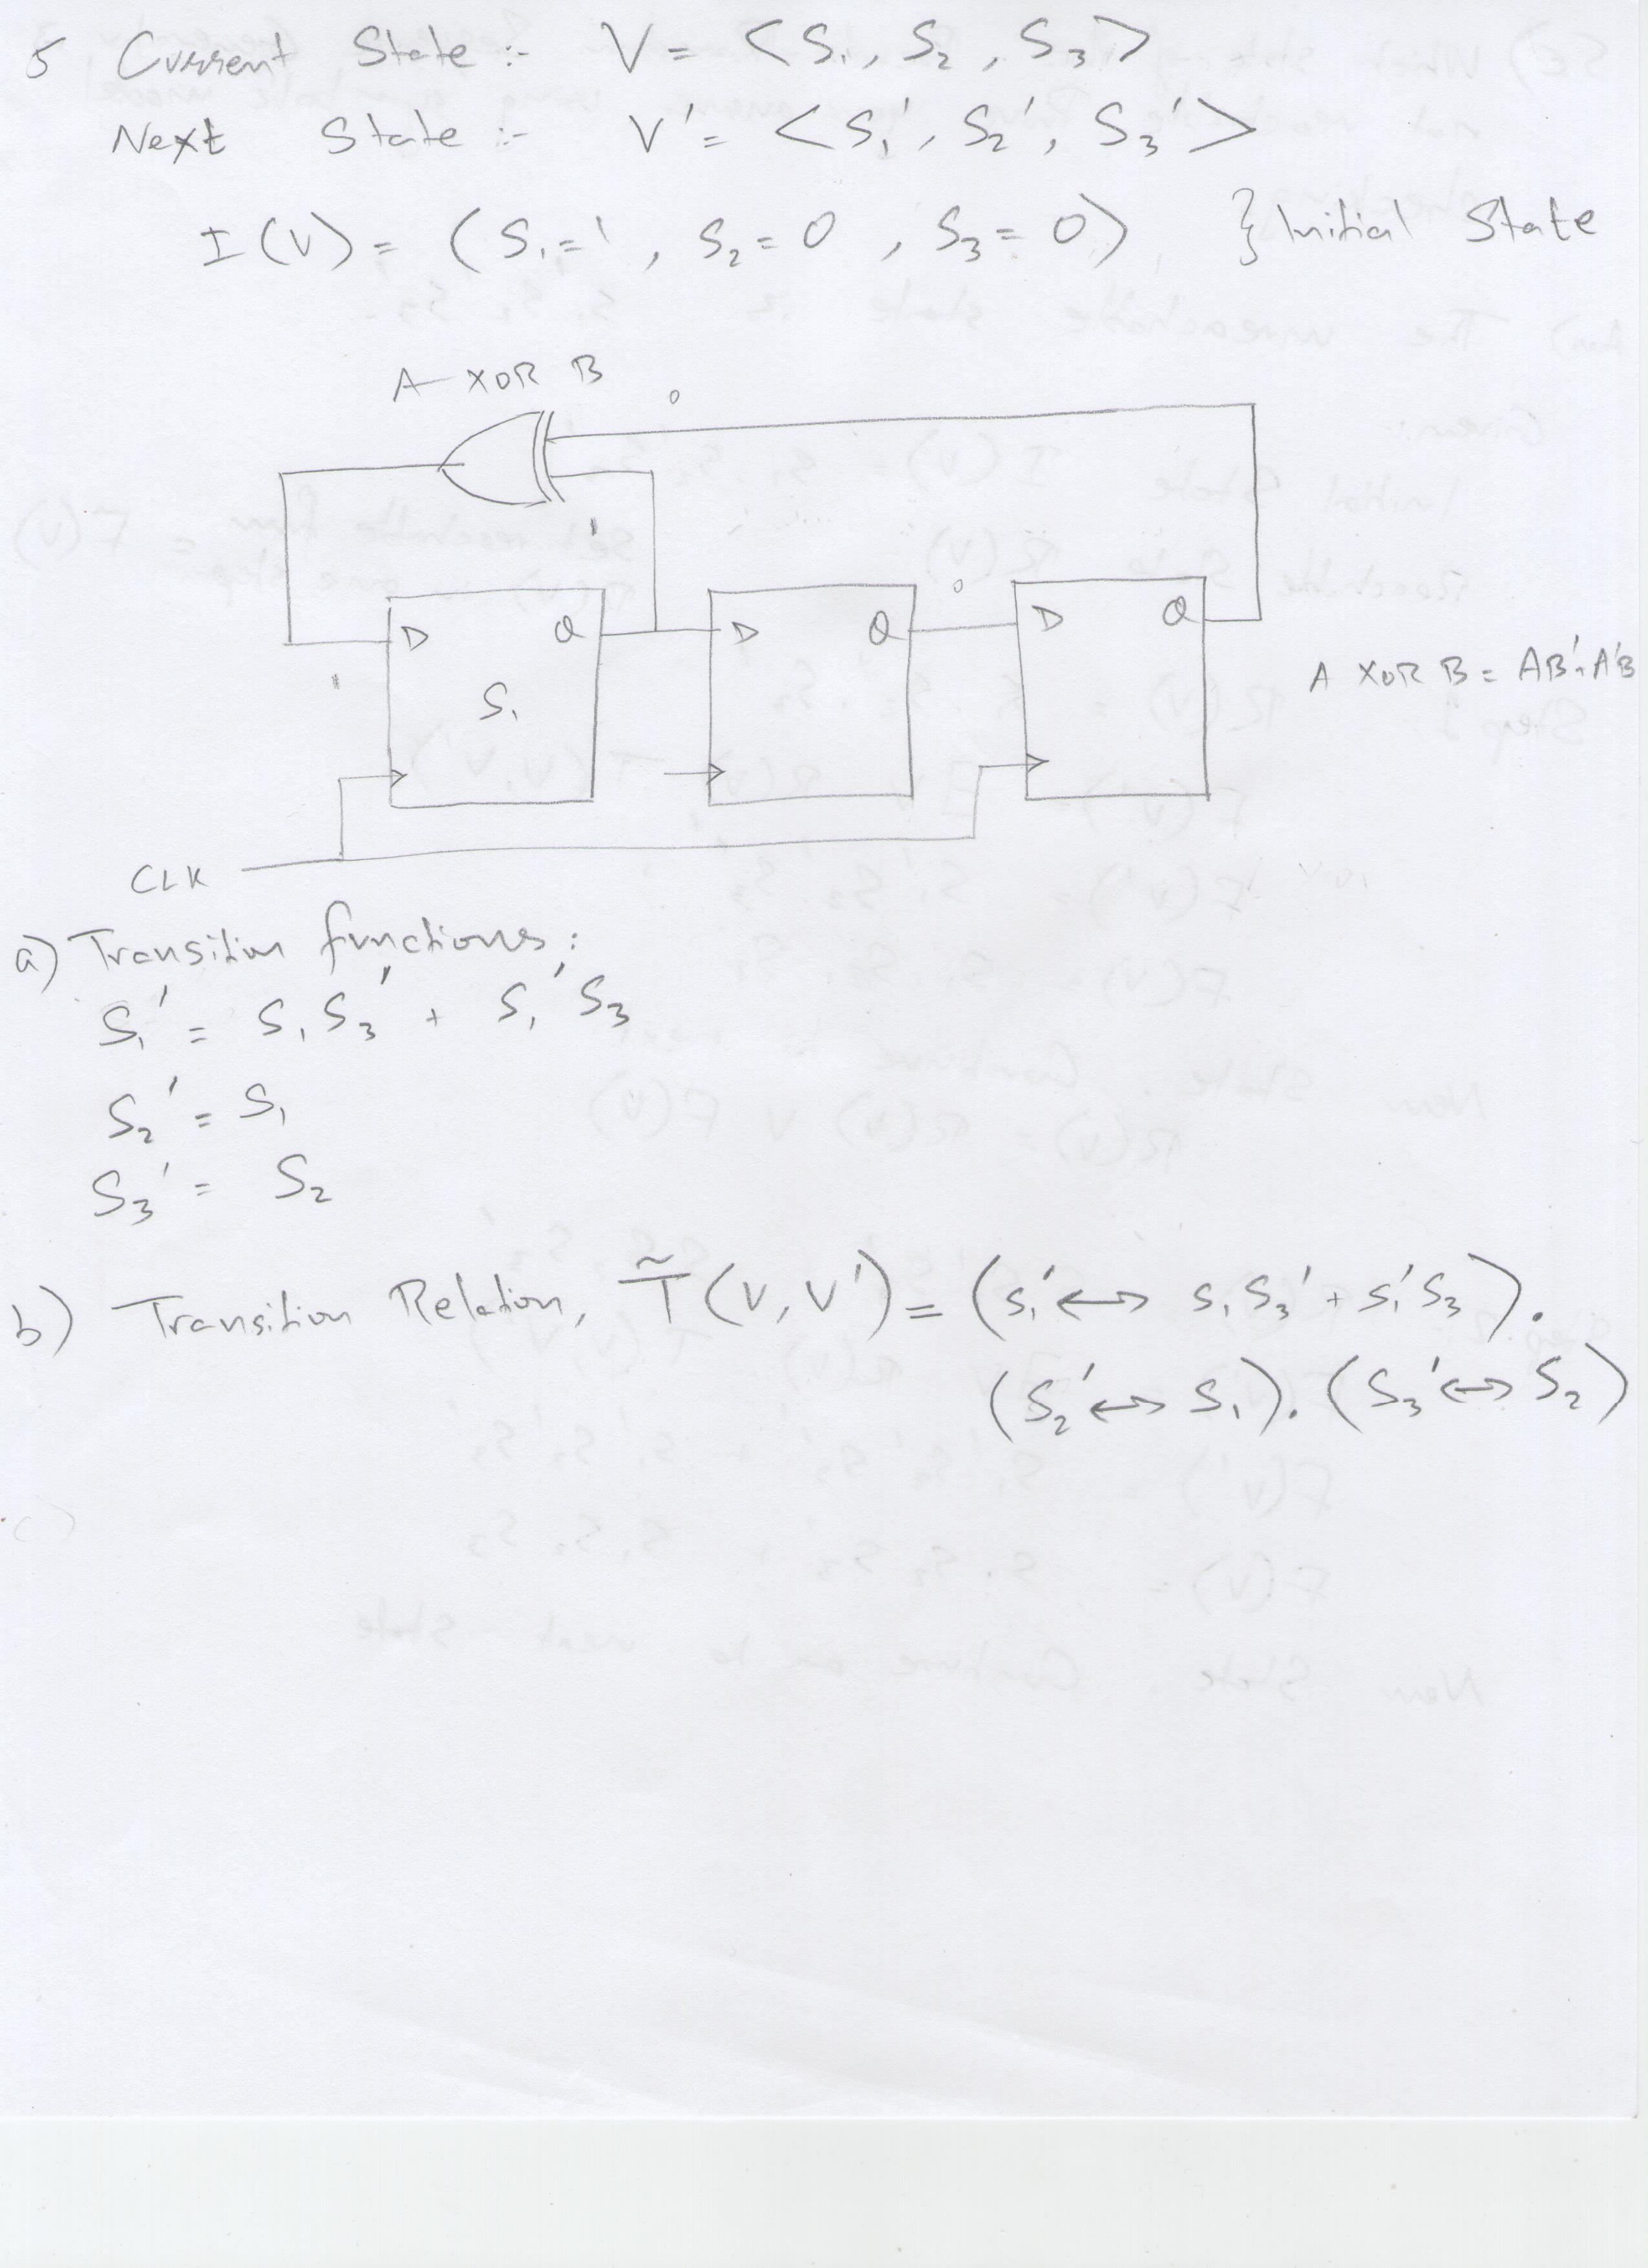 5 Current State :- V = <S₁, S₂, S₃>
Next State :- V' = <S₁', S₂', S₃'>
I(V) = (S₁=1, S₂=0, S₃=0) } Initial State
A XOR B
0
1
D Q
D Q
D Q
0
1
S₁
A XOR B = AB'+A'B
CLK
a) Transition functions:
S₁' = S₁S₃' + S₁'S₃
S₂' = S₁
S₃' = S₂
b) Transition Relation, T̃(V,V') = (S₁' ↔ S₁S₃' + S₁'S₃).
(S₂' ↔ S₁). (S₃' ↔ S₂)